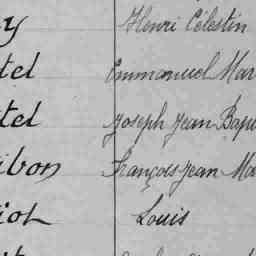 y Henri Célestin
tel Emmanuel Mar
tel Joseph Jean Bap
ibon François Jean Ma
iot Louis